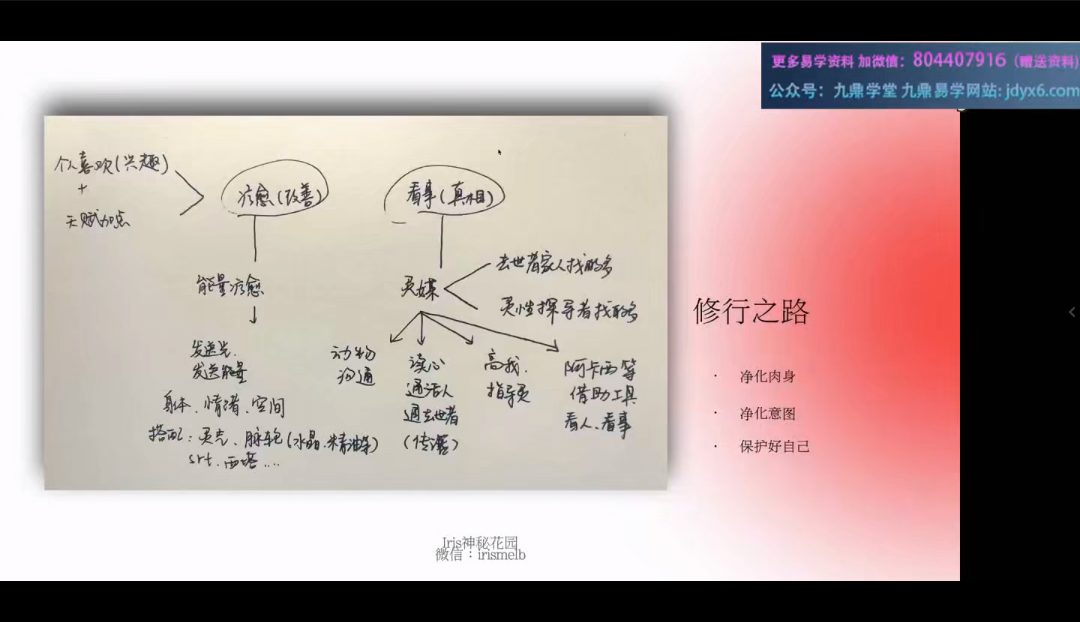 更多易学资料 加微信：804407916（赠送资料)
公众号：九鼎学堂 九鼎易学网站: jdyx6.com
个人喜欢(兴趣)
+
天赋加点
疗愈(改善)
能量疗愈
发送光.
发送能量
身体、情绪、空间
搭配：灵气、脉轮(水晶.精油等)
srt、西塔....
看事(真相)
灵媒
去世者家人找的多
灵性探寻者找的多
动物
沟通
读心
通活人
通去世者
(传灵)
高我.
指导灵
阿卡西等
借助工具
看人、看事
修行之路
· 净化肉身
· 净化意图
· 保护好自己
Iris神秘花园
微信：irismelb